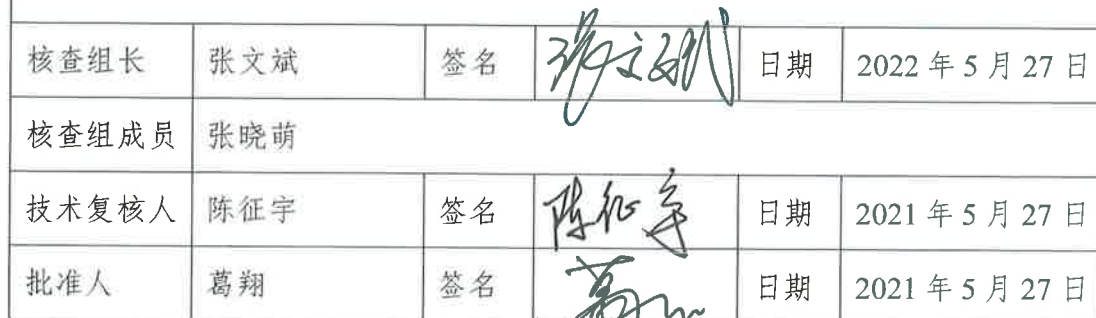 核查组长 张文斌 签名 张文斌 日期 2022 年 5 月 27 日
核查组成员 张晓萌
技术复核人 陈征宇 签名 陈征宇 日期 2021 年 5 月 27 日
批准人 葛翔 签名 日期 2021 年 5 月 27 日